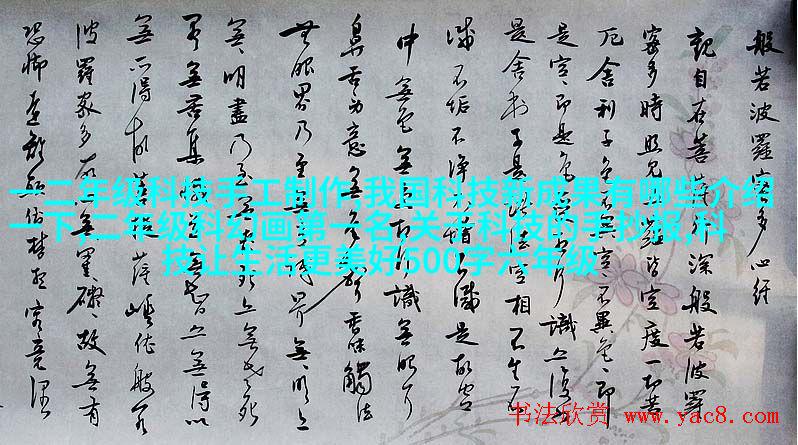 般若波羅密多心经
觀自在菩萨行深般若波羅
密多時照见五蕴皆空度一切苦
厄舍利子色不空不異色色即
是空空即是色行識亦復
是舍利子是诸法空相不生不
滅不垢不净不增不滅是故空
中無色無受想行識無眼耳
鼻舌身意無色聲香味觸法
無眼界乃至無界無無明亦
無明盡乃至無老死亦無老死
盡無苦集滅道無智亦無得以
無所得故菩提薩埵依般若
波羅密多故心無罣礙故無有
恐怖遠離顛倒梦想究竟涅
一二年级科技手工制作,我国科技新成果有哪些介绍
一下,二年级科幻画第一名,关于科技的手抄报,科
技让生活更美好500字六年级
书法欣赏 www.yac8.com